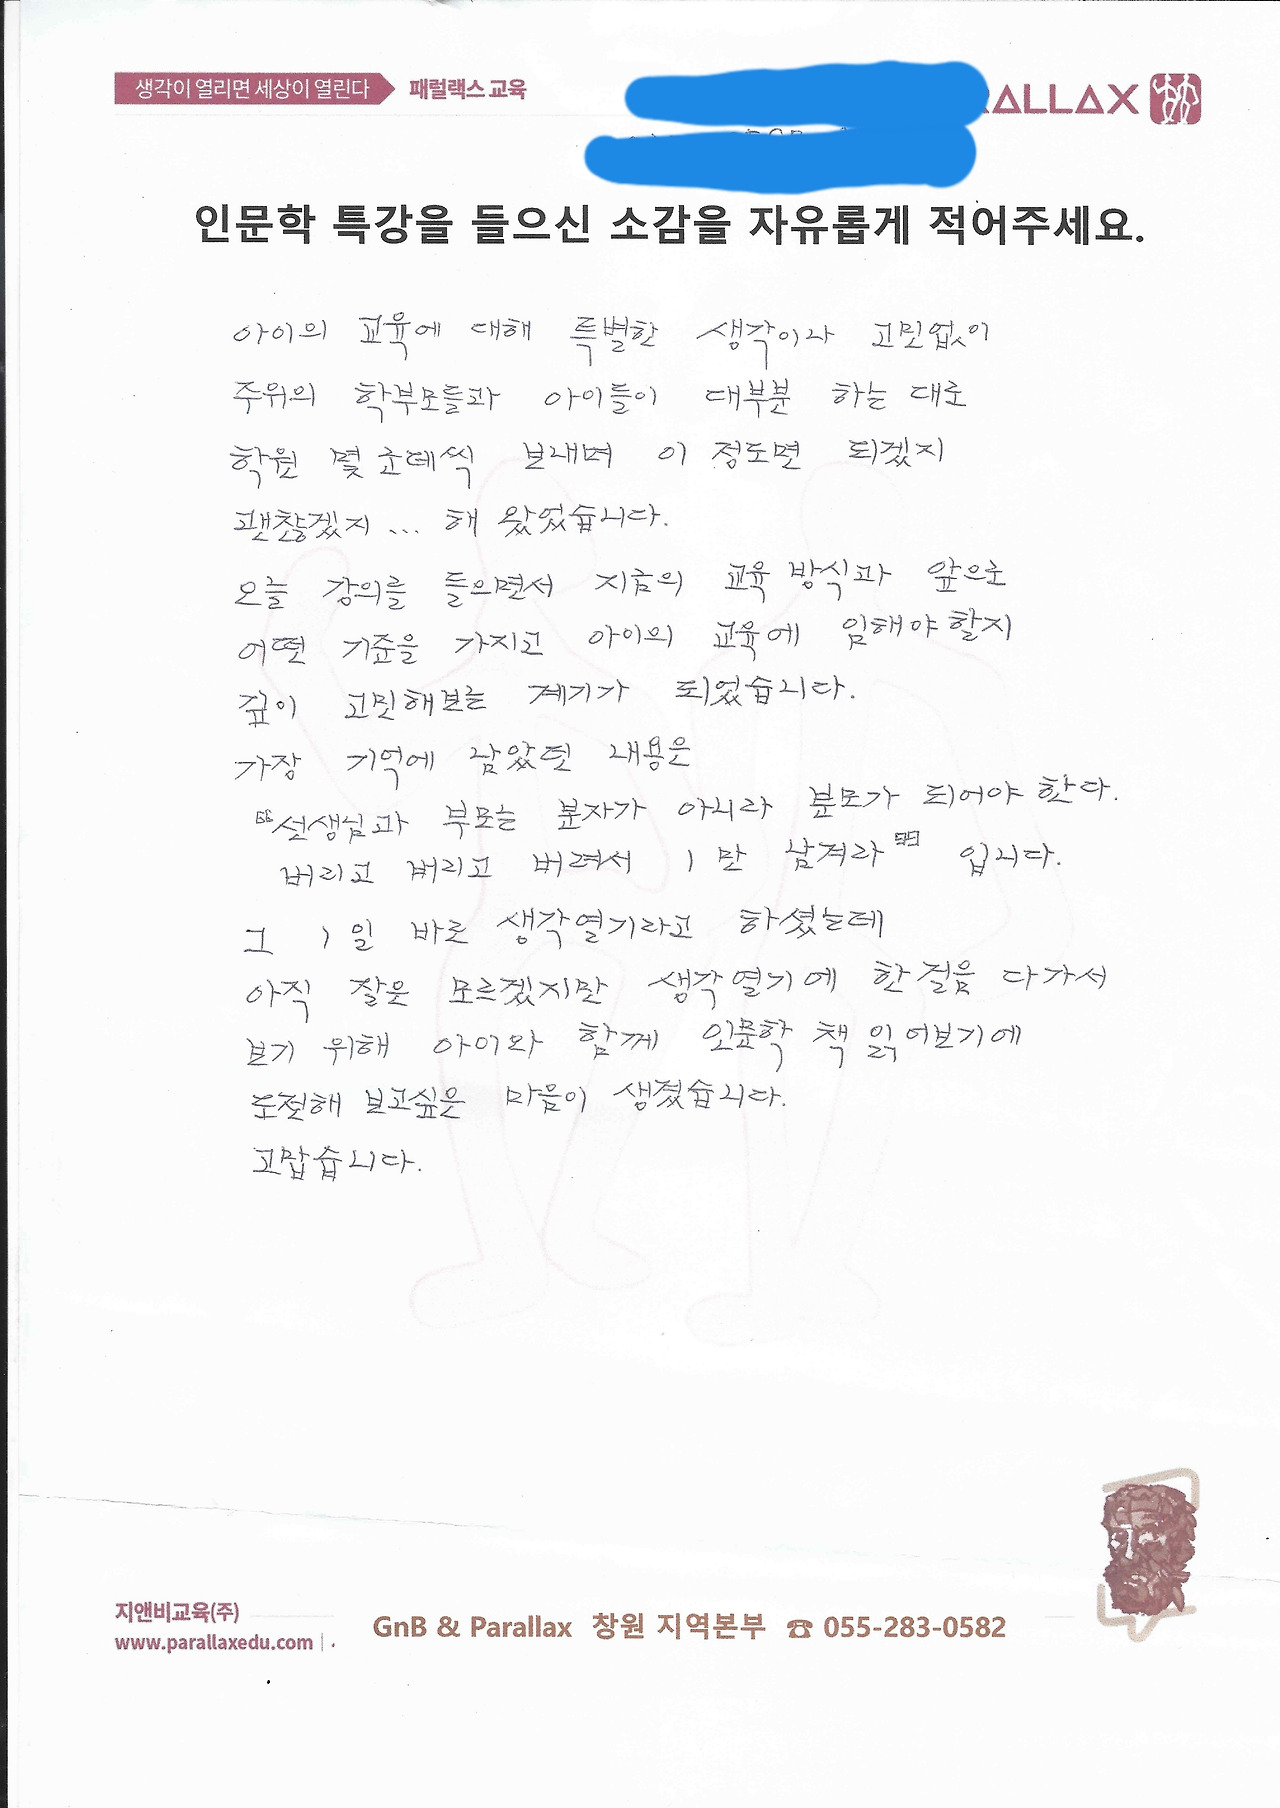 생각이 열리면 세상이 열린다 패럴랙스 교육
인문학 특강을 들으신 소감을 자유롭게 적어주세요.
아이의 교육에 대해 특별한 생각이나 고민없이
주위의 학부모들과 아이들이 대부분 하는 대로
학원 몇 군데씩 보내며 이 정도면 되겠지
괜찮겠지... 해 왔었습니다.
오늘 강의를 들으면서 지금의 교육 방식과 앞으로
어떤 기준을 가지고 아이의 교육에 임해야 할지
깊이 고민해보는 계기가 되었습니다.
가장 기억에 남았던 내용은
"선생님과 부모는 분자가 아니라 분모가 되어야 한다.
버리고 버리고 버려서 1 만 남겨라" 입니다.
그 1 일 바로 생각열기라고 하셨는데
아직 잘은 모르겠지만 생각열기에 한걸음 다가서
보기 위해 아이와 함께 인문학 책 읽어보기에
도전해 보고싶은 마음이 생겼습니다.
고맙습니다.
지앤비교육(주)
www.parallaxedu.com
GnB & Parallax 창원 지역본부 ☎ 055-283-0582